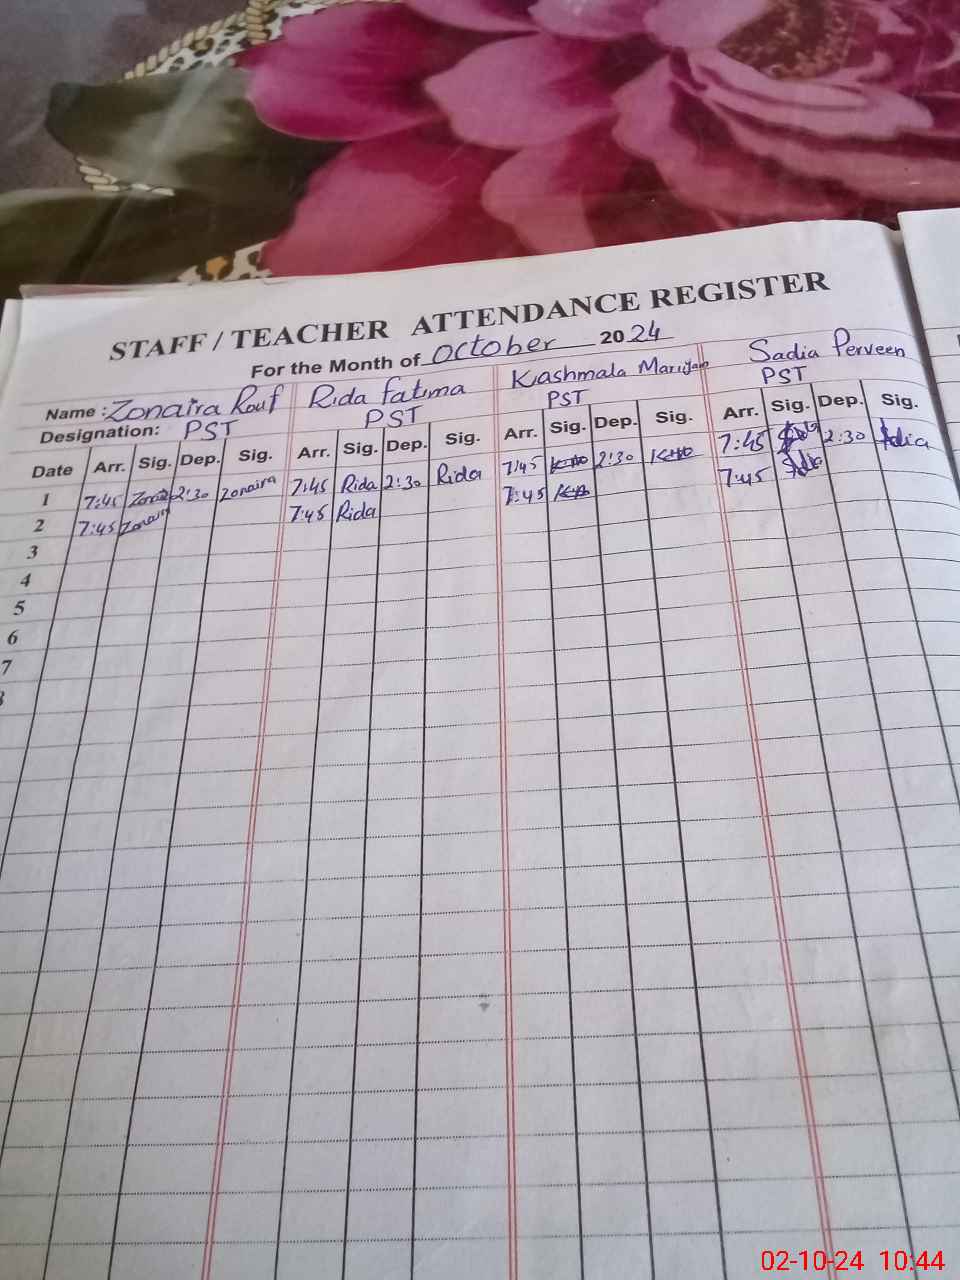 STAFF / TEACHER ATTENDANCE REGISTER
For the Month of October 2024
Name : Zonaira Rouf Rida fatima Kashmala Mariyam Sadia Perveen
Designation: PST PST PST PST
Date Arr. Sig. Dep. Sig. Arr. Sig. Dep. Sig. Arr. Sig. Dep. Sig. Arr. Sig. Dep. Sig.
1 7:45 Zonaira 2:30 Zonaira 7:45 Rida 2:30 Rida 7:45 2:30 7:45 2:30 Sadia
2 7:45 Zonaira 7:45 Rida 7:45 7:45
3
4
5
6
7
02-10-24 10:44